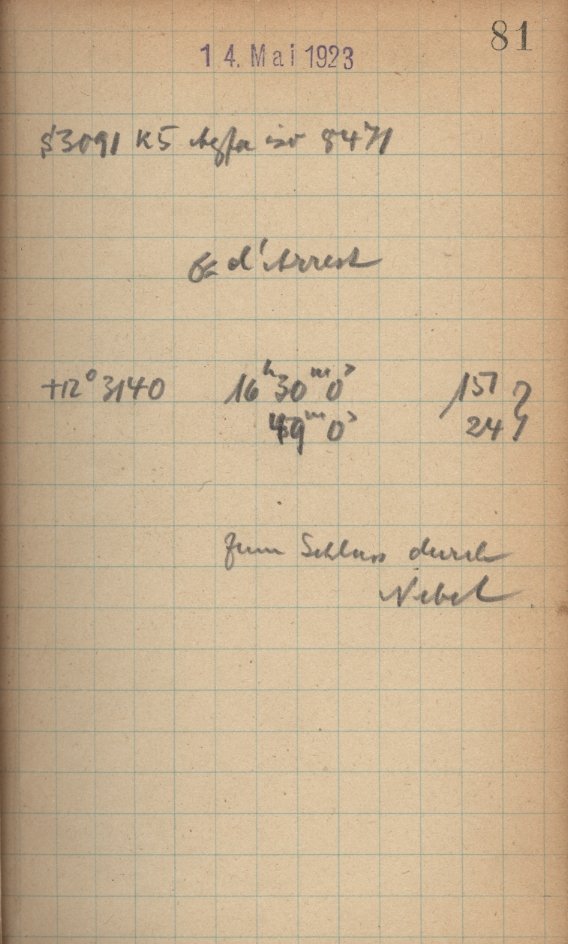 81
14. Mai 1923
S3091 K5 Agfa iso 8471
d'Arrest
+12° 3140 16ʰ30ᵐ0ˢ 157
49ᵐ0ˢ 24
zum Schluss durch
Nebel